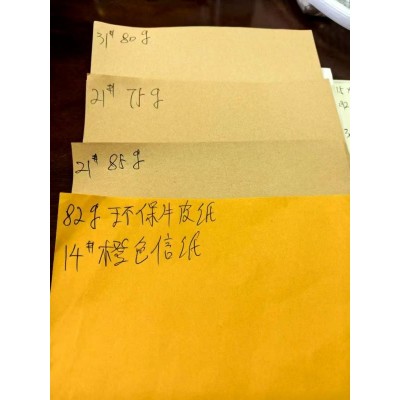 31# 80g
21# 75g
21# 85g
82g环保牛皮纸
14#橙色信纸